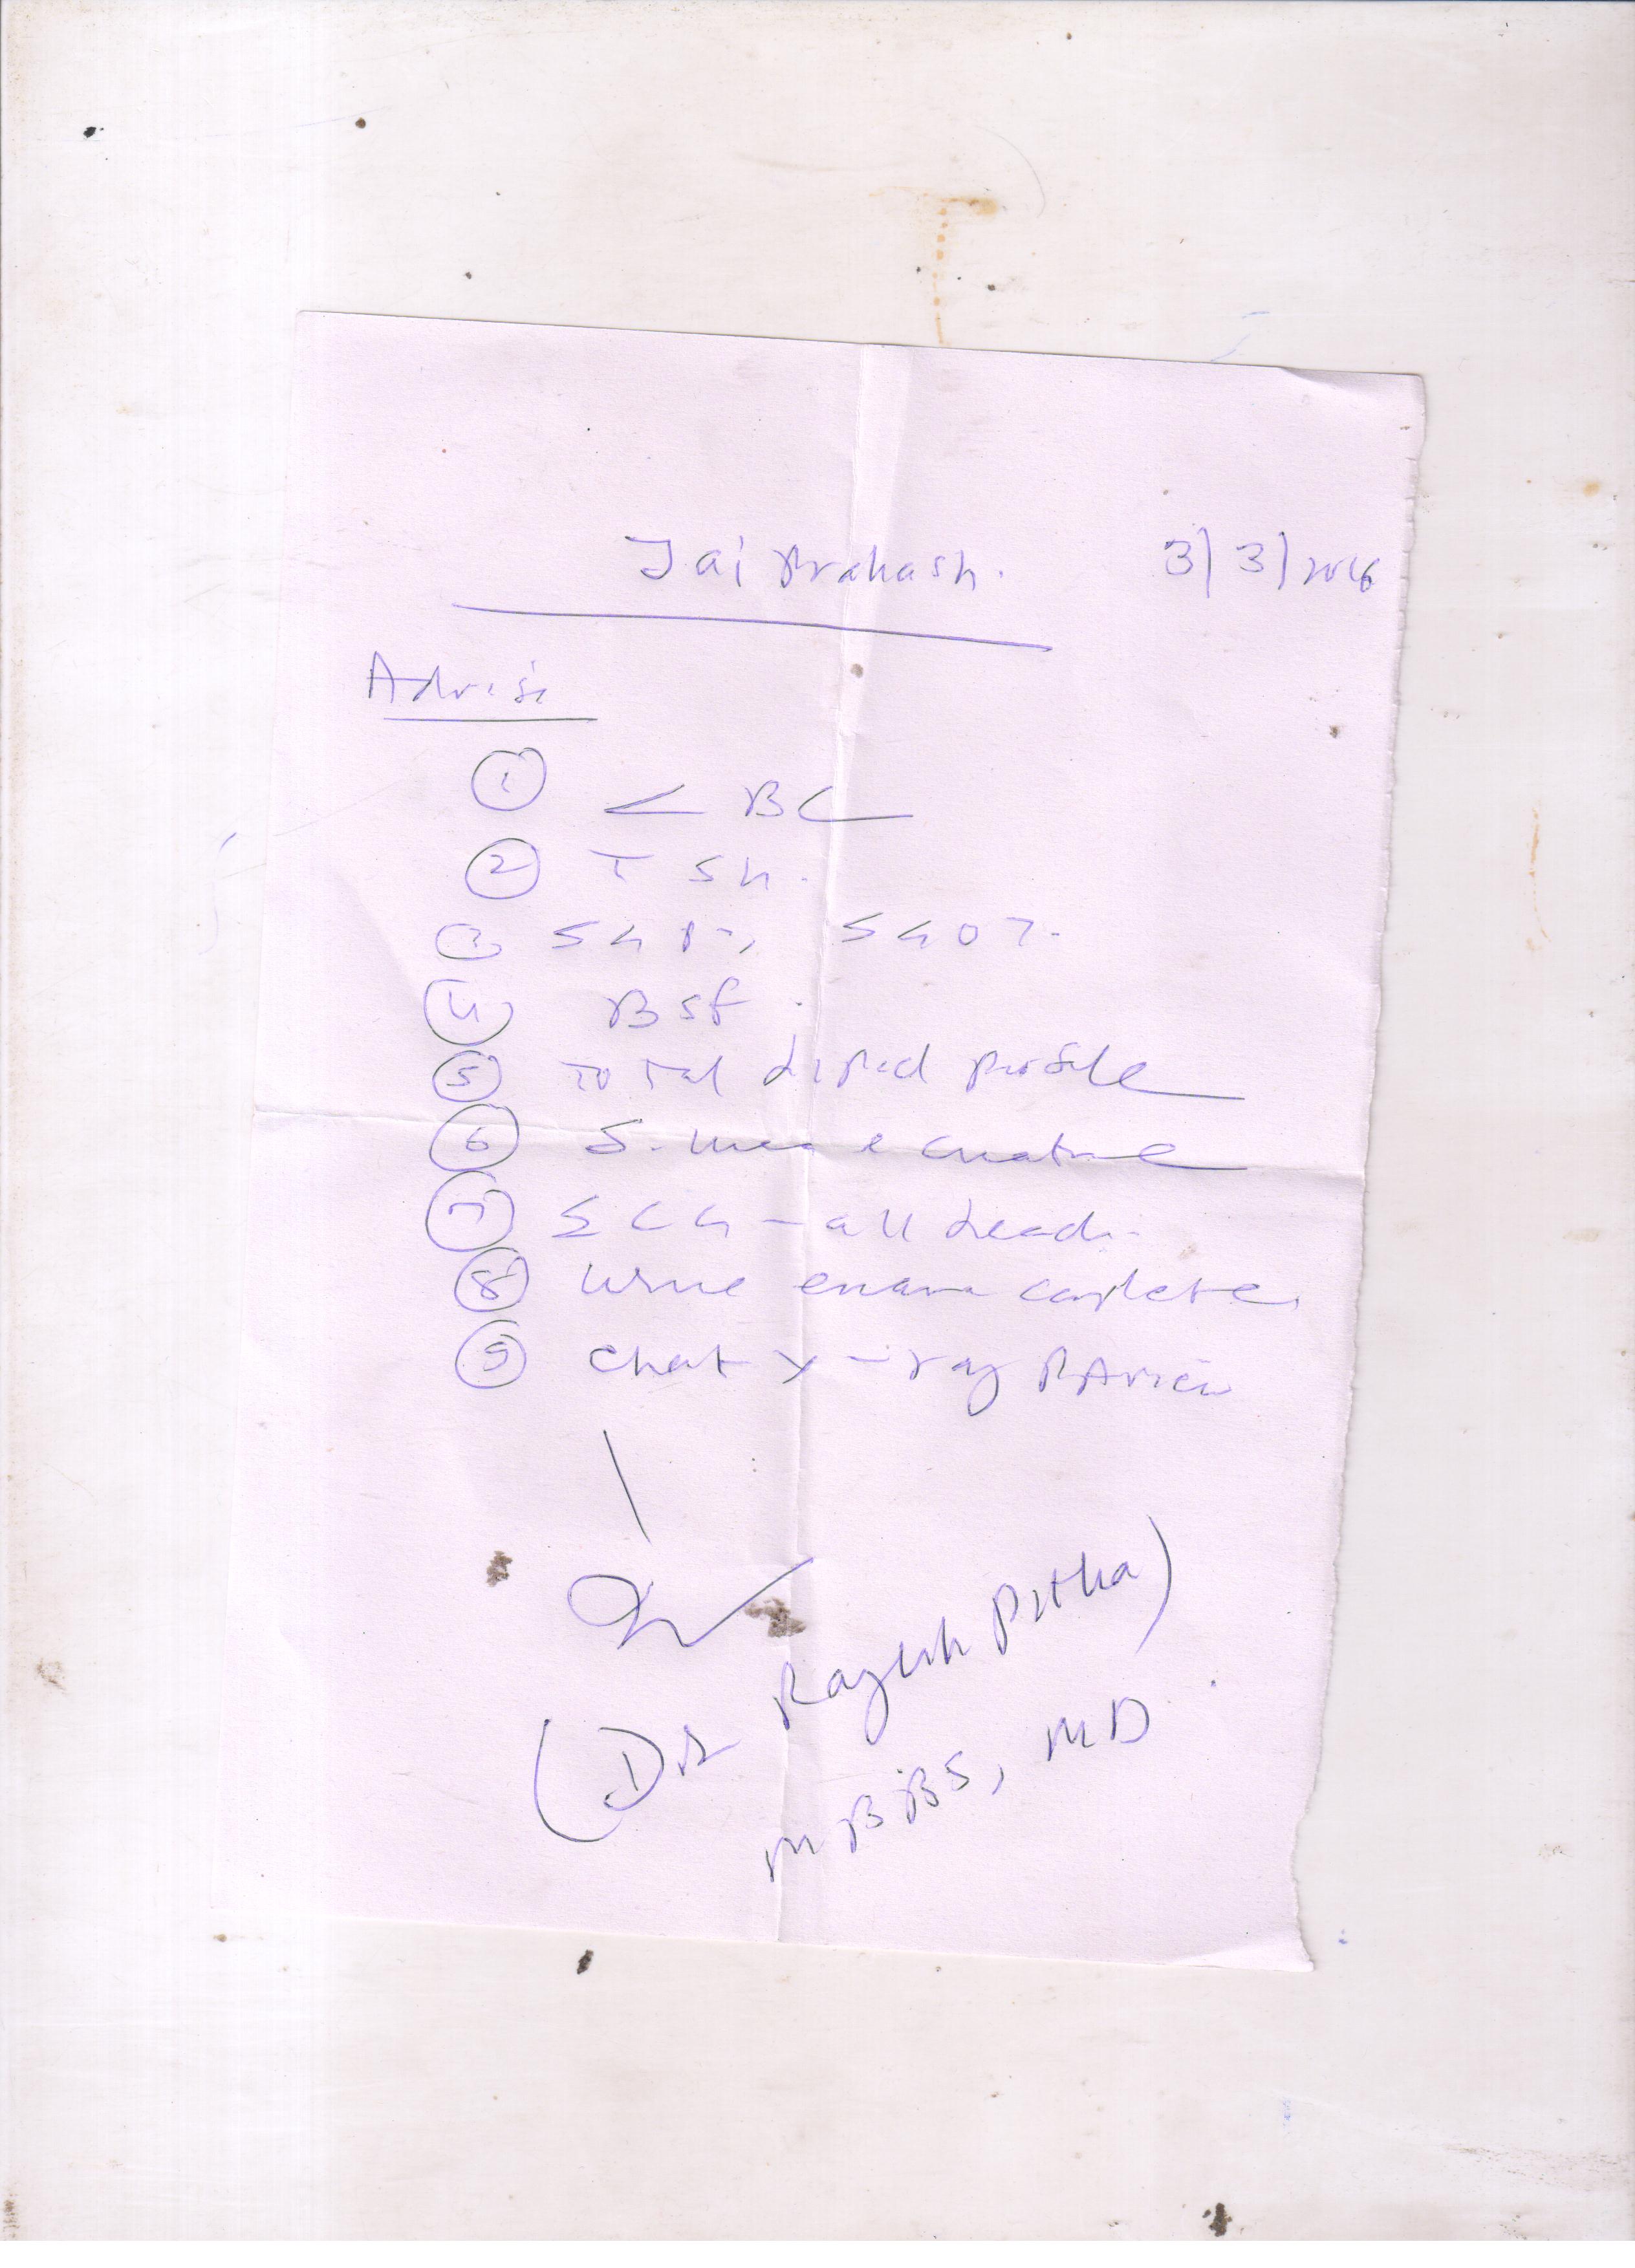 Jai Prakash. 3/3/2016
Advise
① CBC
② TSH.
③ SGPT, SGOT.
④ BSF.
⑤ Total Lipid Profile
⑥ S. Urea & Creatine
⑦ ECG - all Lead.
⑧ Urine exam complete.
⑨ Chest X-ray PA view
(Dr Rajesh
MBBS, MD